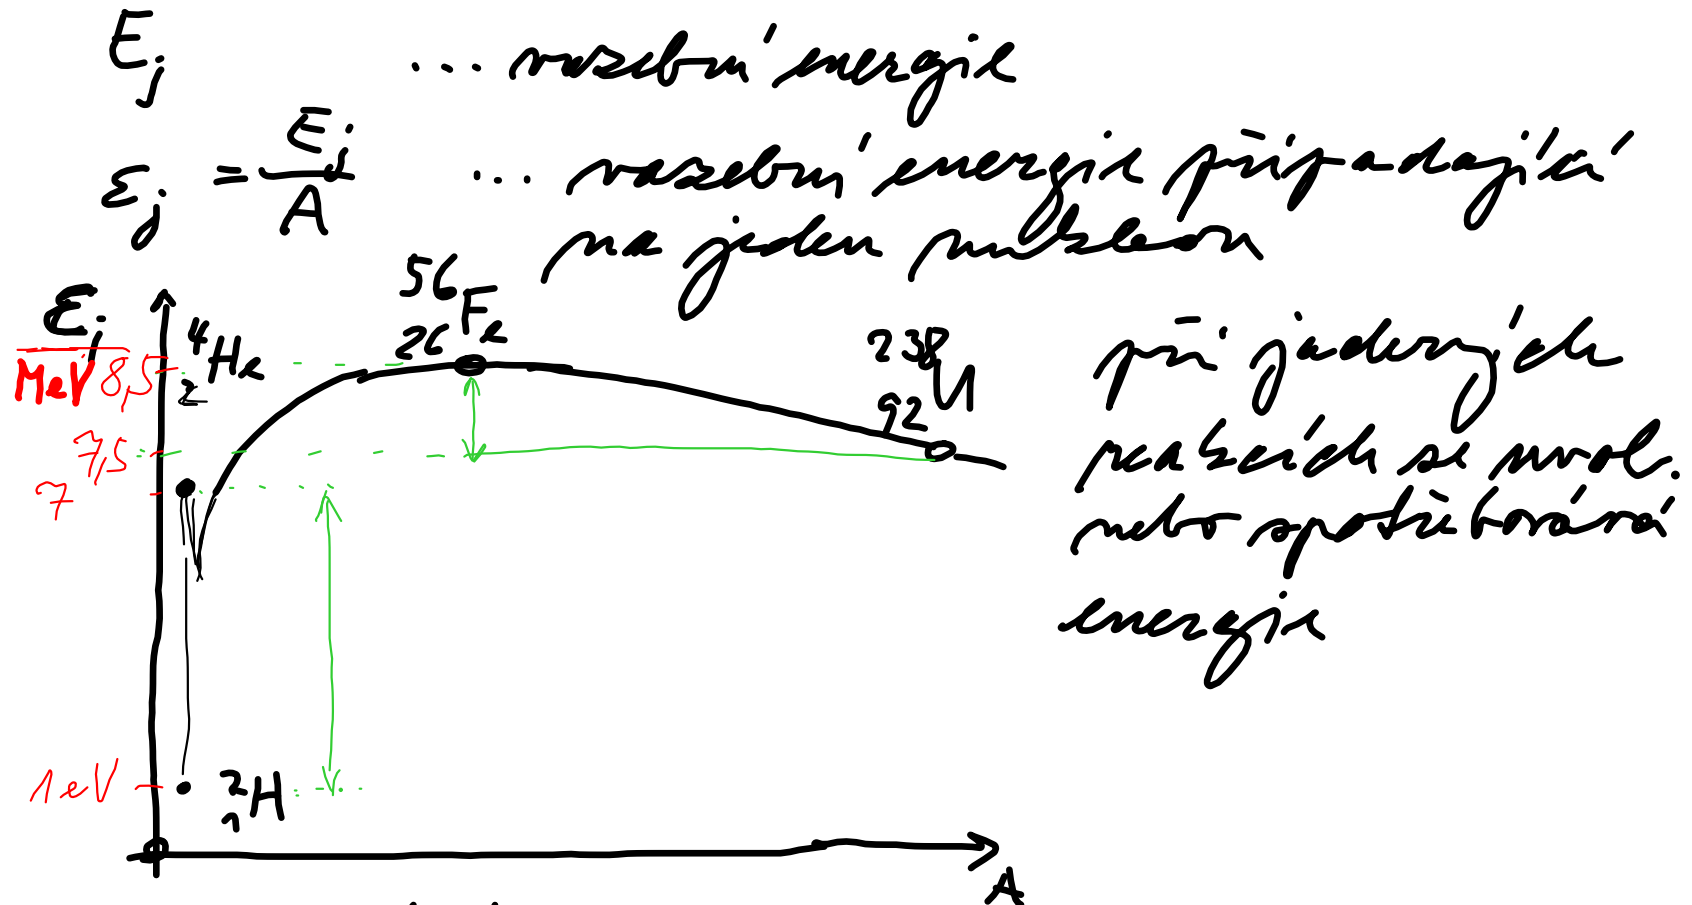 Ej ... vazební energie
εj = Ej/A ... vazební energie připadající
na jeden nukleon
εj
MeV
8,5
7,5
7
1eV
⁴₂He
⁵⁶₂₆Fe
²³⁸₉₂U
²₁H
A
při jaderných
reakcích se uvol.
nebo spotřebovává
energie